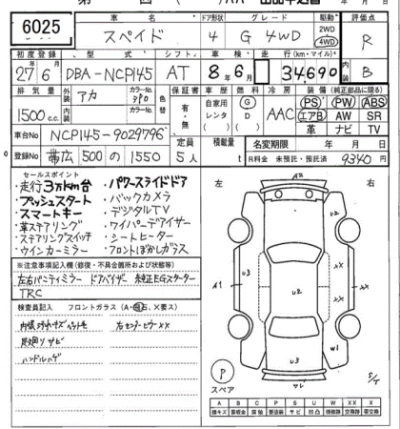 6025
車名 ドア形状 グレード 駆動 評価点
スペイド 4 G 4WD 2WD 4WD R
初度登録 型式 シフト 車検 走行(km・マイル) 内装
27年6月 DBA-NCP145 AT 8年6月 34,690 B
排気量 外装 カラーNo. 色替 保証書 車歴 燃料 冷房 装備(純正部品に限る)
1500cc アカ 3P0 有・無 自家用 レンタ G D AAC PS PW ABS
内装 カラーNo. エアB AW SR
革 ナビ TV
車台No. NCP145-9029796
登録No. 帯広 500 の 1550 定員 5人 積載量 t 名変期限 年 月 日
R料金 未預託・預託済 9340円
セールスポイント
・走行3万km台 ・パワースライドドア
・プッシュスタート ・バックカメラ
・スマートキー ・デジタルTV
・革ステアリング ・ワイパーデアイサー
・ステアリングスイッチ ・シートヒーター
・ウインカーミラー ・フロントぼかしガラス
※注意事項記入欄(修復・不具合箇所および状態等)
左右バニティミラー ドアバイザー 純正EGスターター
TRC
検査員記入 フロントガラス
下廻りサビ
ハンドルハゲ
左 右
U2
A1
XX
XX
U2
W1
U3
P
スペア
A B C P S U W X XX